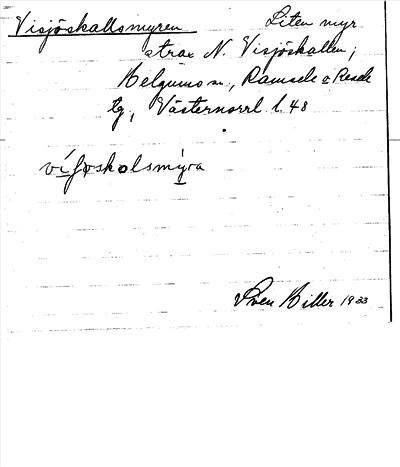 Visjöskallsmyren Liten myr
strax N. Visjöskallen;
Helgums sn., Ramsele o Resele
tg, Västernorrl. l. 48
Sven Hiller 1933